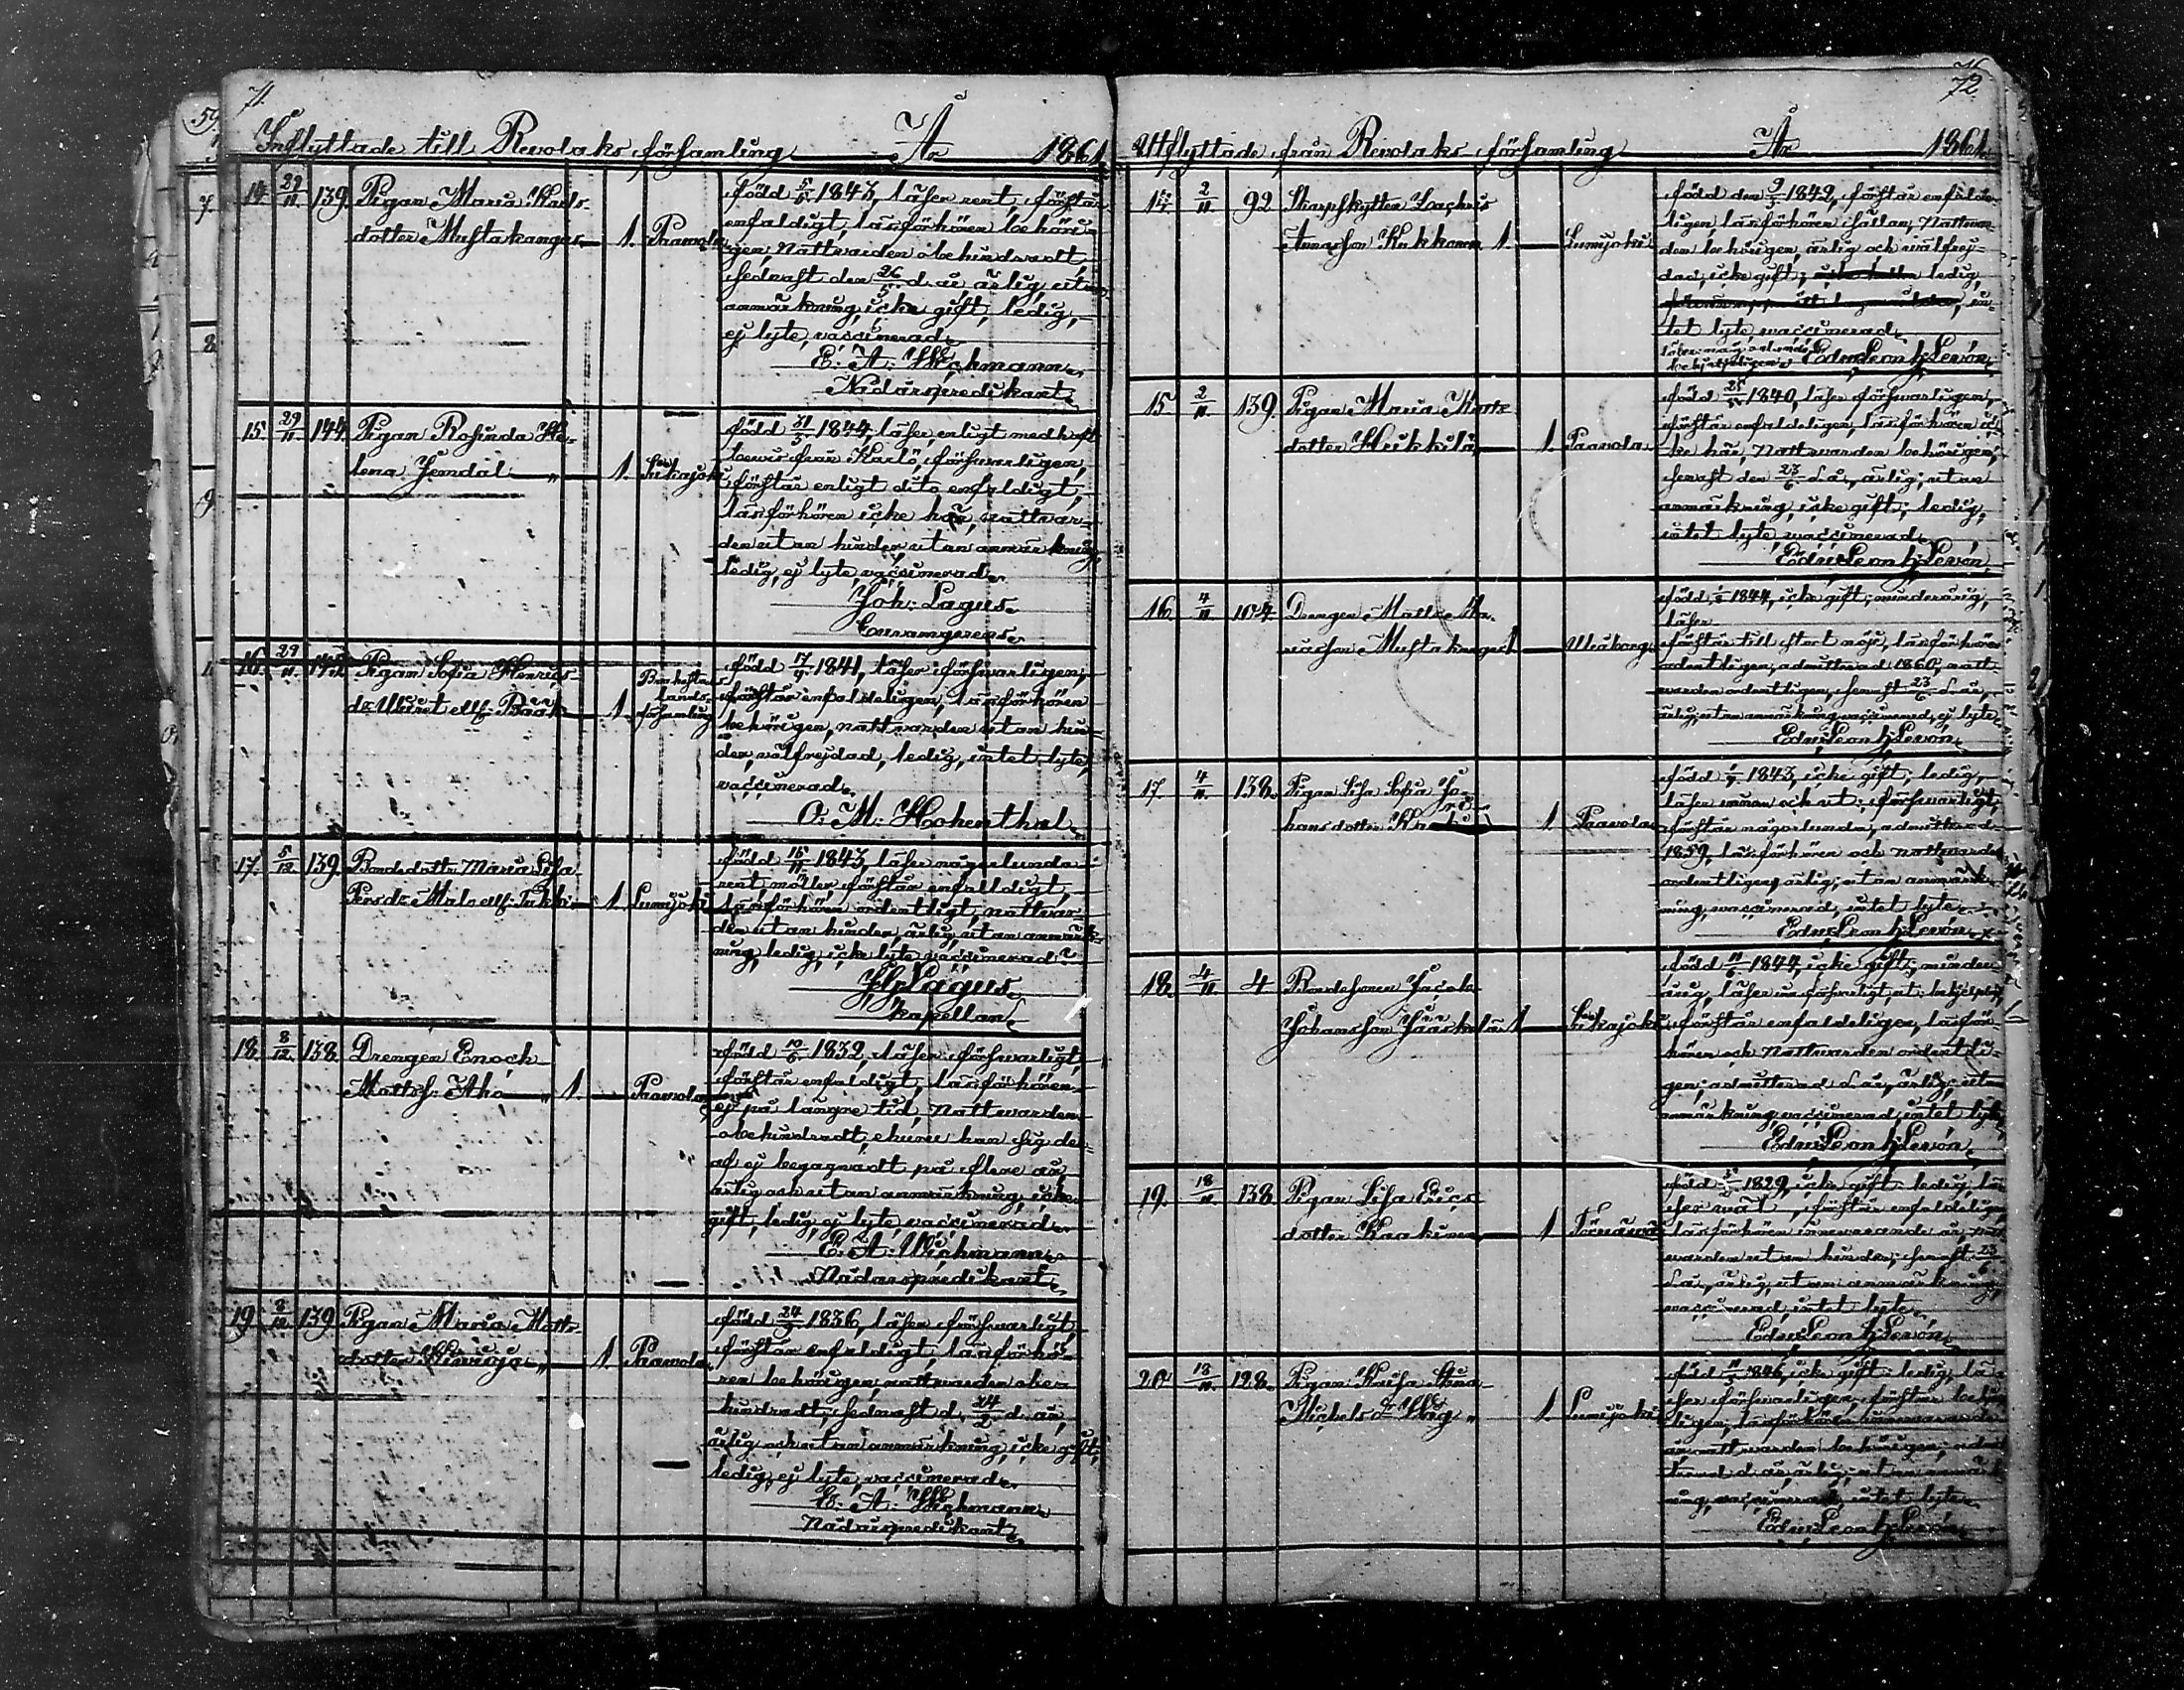 71.
Inflyttade till Revolaks församling År 1861
14. 29/11. 139. Pigan Maria Karls-
dotter Mustakangas 1. Paavola
född 5/5 1843, läser rent, förstår
enfaldigt, läsförhören behöri-
gen, Nattvarden obehindradt,
sednast den 26/5 d. år, ärlig, utan
anmärkning, icke gift, ledig,
ej lyte, vaccinerad.
E. A. Wichmann.
Nådårspredikant.
15. 29/11. 144. Pigan Rosinda He-
lena Jemdal 1. Siikajoki
född 31/3 1844, läser, enligt medhaft
bewis från Karlö, försvarligen,
förstår enligt dito enfaldigt,
läsförhören icke här, nattvar-
den utan hinder, utan anmärkning,
ledig, ej lyte, vaccinerad.
Joh: Lagus.
16. 29/11. Pigan Sofia Henrics-
dr 1 Brahestads
lands-
församling
född 17/9 1841, läser försvarligen,
förstår enfaldeligen, läsförhören
behörigen, nattvarden utan hin-
der, välfrejdad, ledig, intet lyte,
vaccinerad.
C. M. Hohenthal.
17. 5/12 139. Bondedottr Maria Lisa
Persdr 1. Lumijoki
född 15/11 1843, läser någorlunda
rent, förstår enfalldigt,
läsförhören ordentligt, nattvar-
den utan hinder, ärlig, utan anmärk-
ning, ledig, icke lyte, vaccinerad.
Lagus.
Kapellan.
18. 8/12. 138. Drengen Enoch
Mattss. Aho 1. Paavola
född 10/6 1832, läser försvarligt,
förstår enfaldigt, läsförhören
ej på längre tid, Nattvarden
obehindradt, ehuru han sig der-
af ej begagnadt på flere år,
ärlig och utan anmärkning, icke
gift, ledig, ej lyte, vaccinerad.
E. A. Wichmann.
Nådårspredikant.
19. 8/12. 139. Pigan Maria Matts-
dotter 1. Paavola
född 24/3 1836, läser försvarligt,
förstår enfaldigt, läsförhö-
ren behörigen, nattvarden obe-
hindradt, sednast d. 24/2 d. år,
ärlig och utan anmärkning, icke gift,
ledig, ej lyte, vaccinerad.
E. A. Wichmann
Nådårspredikant.
72
Utflyttade från Revolaks församling År 1861.
14. 2/11. 92 Skarpskytten Zachris
Kukkonen 1. Lumijoki
född den 9/5 1842, förstår enfalde-
ligen, läsförhören sällan, Nattvar-
den behörigen, ärlig och välfrej-
dad, icke gift, ledig,
in-
tet lyte, vaccinerad.
Edv: Leon h: Levón.
15 2/11. 139. Pigan Maria Matts-
dotter Heikkilä 1. Paavola.
född 25/4 1840, läser försvarligen,
förstår enfaldeligen, läsförhören ic-
ke här, Nattvarden behörigen,
senast den 23/6 d. år, ärlig, utan
anmärkning, icke gift, ledig,
intet lyte, vaccinerad.
Edv: Leon h: Levón.
16. 4/11. 104. Drengen Matts
Mustakangas 1 Uleåborg.
född 1844, icke gift, minderårig,
läser
förstår till stort nöje, läsförhören
ordentligen, admitterad 1860, natt-
varden ordentligen, senast 23/6 d. år,
ärlig, utan anmärkning, vaccinerad, ej lyte.
Edv: Leon h: Levón.
17. 4/11. 138. Pigan Lisa Sofia Jo-
hansdotter 1 Paavola
född 1843, icke gift, ledig,
läser innan och ut: försvarligt,
förstår någorlunda, admitterad
1859, läsförhören och nattvarden
ordentligen, ärlig, utan anmärk-
ning, vaccinerad, intet lyte.
Edv: Leon h: Levón.
18. 4/11. 4 Bondesonen Jacob
Johansson Jääskelä 1 Siikajoki
född 1844, icke gift, minder-
årig, läser
förstår enfaldeligen, läsför-
hören och Nattvarden ordentli-
gen, admitterad d. år, ärlig, utan
anmärkning, vaccinerad, intet lyte.
Edv: Leon h: Levón.
19. 18/11. 138 Pigan Lisa Erics-
dotter Kaakinen 1 Törnävä
född 1829, icke gift, ledig, lä-
ser väl, förstår enfaldeligen,
läsförhören innevarande år, natt-
varden utan hinder, senast 23/6
d. år, ärlig, utan anmärkning,
vaccinerad, intet lyte.
Edv: Leon h: Levón.
20. 18/11. 128. Pigan Kaisa Stina
Michelsdr 1. Lumijoki
född 1846, icke gift, ledig, lä-
ser försvarligen, förstår
läsförhören innevarande
år, nattvarden behörigen,
d. år, ärlig, utan anmärk-
ning, vaccinerad, intet lyte.
Edv: Leon h: Levón.